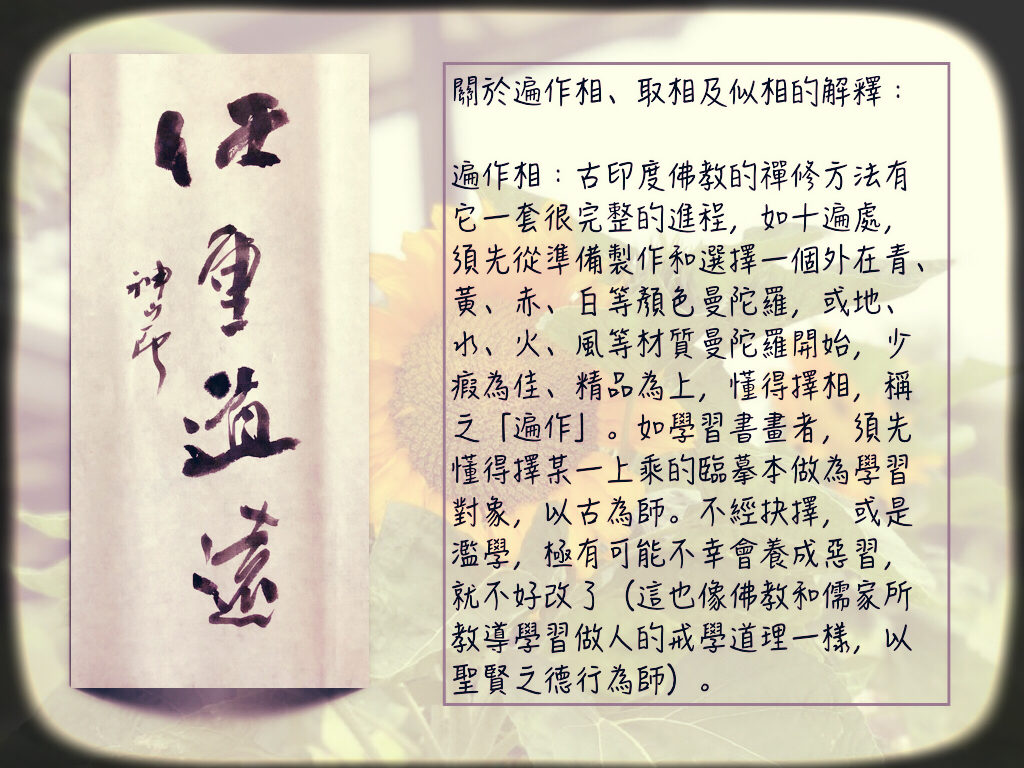 任重道遠
關於遍作相、取相及似相的解釋：
遍作相：古印度佛教的禪修方法有
它一套很完整的進程，如十遍處，
須先從準備製作和選擇一個外在青、
黃、赤、白等顏色曼陀羅，或地、
水、火、風等材質曼陀羅開始，少
瑕為佳、精品為上，懂得擇相，稱
之「遍作」。如學習書畫者，須先
懂得擇某一上乘的臨摹本做為學習
對象，以古為師。不經抉擇，或是
濫學，極有可能不幸會養成惡習，
就不好改了（這也像佛教和儒家所
教導學習做人的戒學道理一樣，以
聖賢之德行為師）。